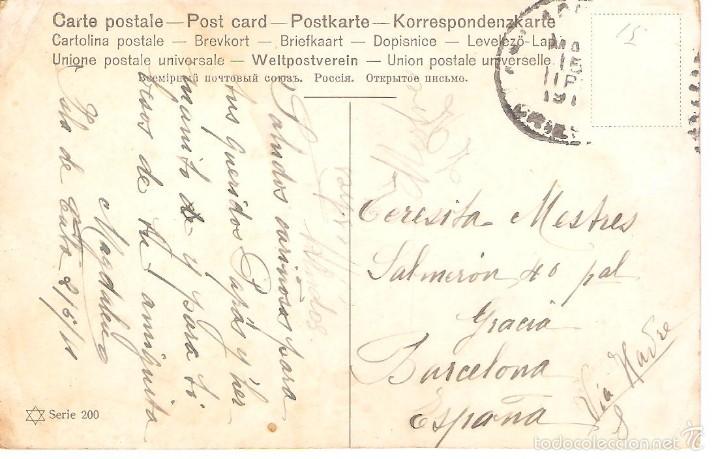 Carte postale — Post card — Postkarte — Korrespondenzkarte
Cartolina postale – Brevkort – Briefkaart – Dopisnice – Levelező-Lap
Unione postale universale – Weltpostverein – Union postale universelle.
Всемірный почтовый союзъ. Россія. Открытое письмо.
15
Saludos cariñosa para
tus queridos Papás y her
manito y para ti
besos de tu amiguita
Magdalena
Teresita Mestres
Salmerón 40 pal
Gracia
Barcelona
España
Via Havre
Serie 200
todocoleccion